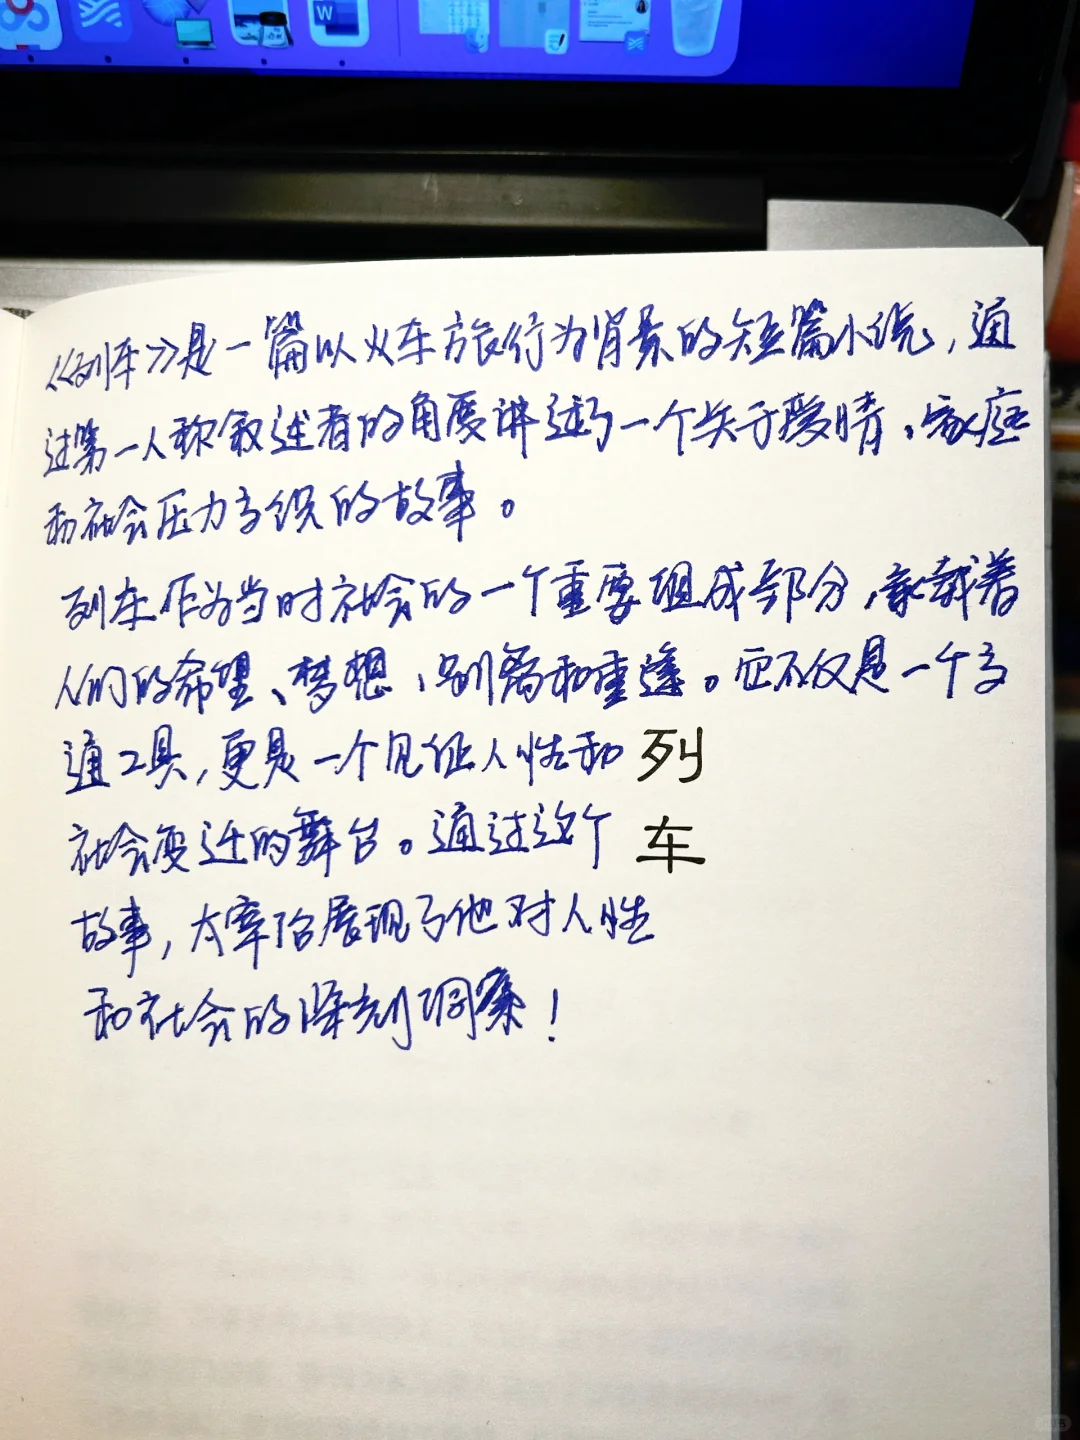 《列车》是一篇以火车旅行为背景的短篇小说，通
过第一人称叙述者的角度讲述了一个关于爱情、家庭
和社会压力交织的故事。
列车作为当时社会的一个重要组成部分，承载着
人们的希望、梦想、别离和重逢。它不仅是一个交
通工具，更是一个见证人性和
社会变迁的舞台。通过这个
故事，太宰治展现了他对人性
和社会的深刻洞察！
列
车
W